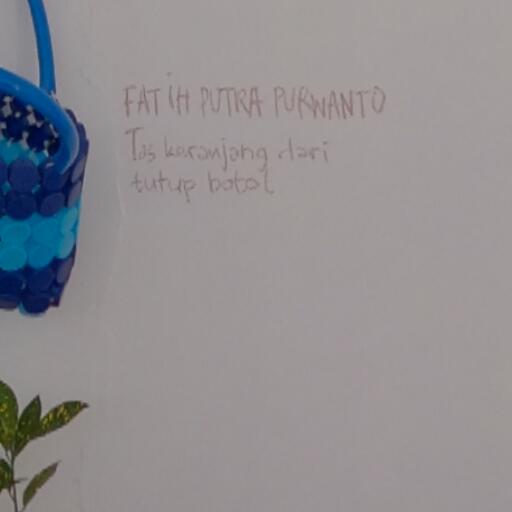 FATIH PUTRA PURWANTO
Tas keranjang dari
tutup botol